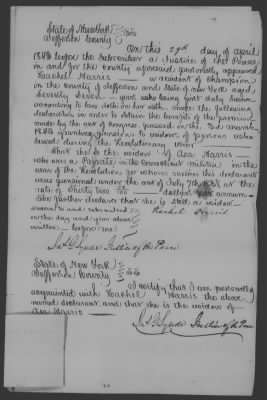 State of New York
Jefferson County } ss
On this 29th day of April
1844 before the Subscriber a Justice of the Peace
in and for the County aforesaid personally appeared
Rachel Harris a resident of Champion
in the County of Jefferson and State of New York aged
Seventy Seven years who being first duly Sworn
according to law doth on her oath make the following
declaration in order to obtain the benefits of the provision
made by the act of Congress passed on the 3d March
1843 granting pensions to widows of persons who
served during the Revolutionary War
That she is the widow of Asa Harris
who was a Private in the Connecticut militia in the
war of the Revolution for whose services this declarant
was pensioned under the act of July 7th 1838 at the
rate of thirty two dollars per annum
She further declares that she is still a widow
Sworn to and subscribed
on the day and year above
written before me
Rachel Harris
Justice of the Peace
State of New York
Jefferson County } ss
I certify that I am personally
acquainted with Rachel Harris the above
named declarant and that she is the widow of
Asa Harris
Justice of the Peace